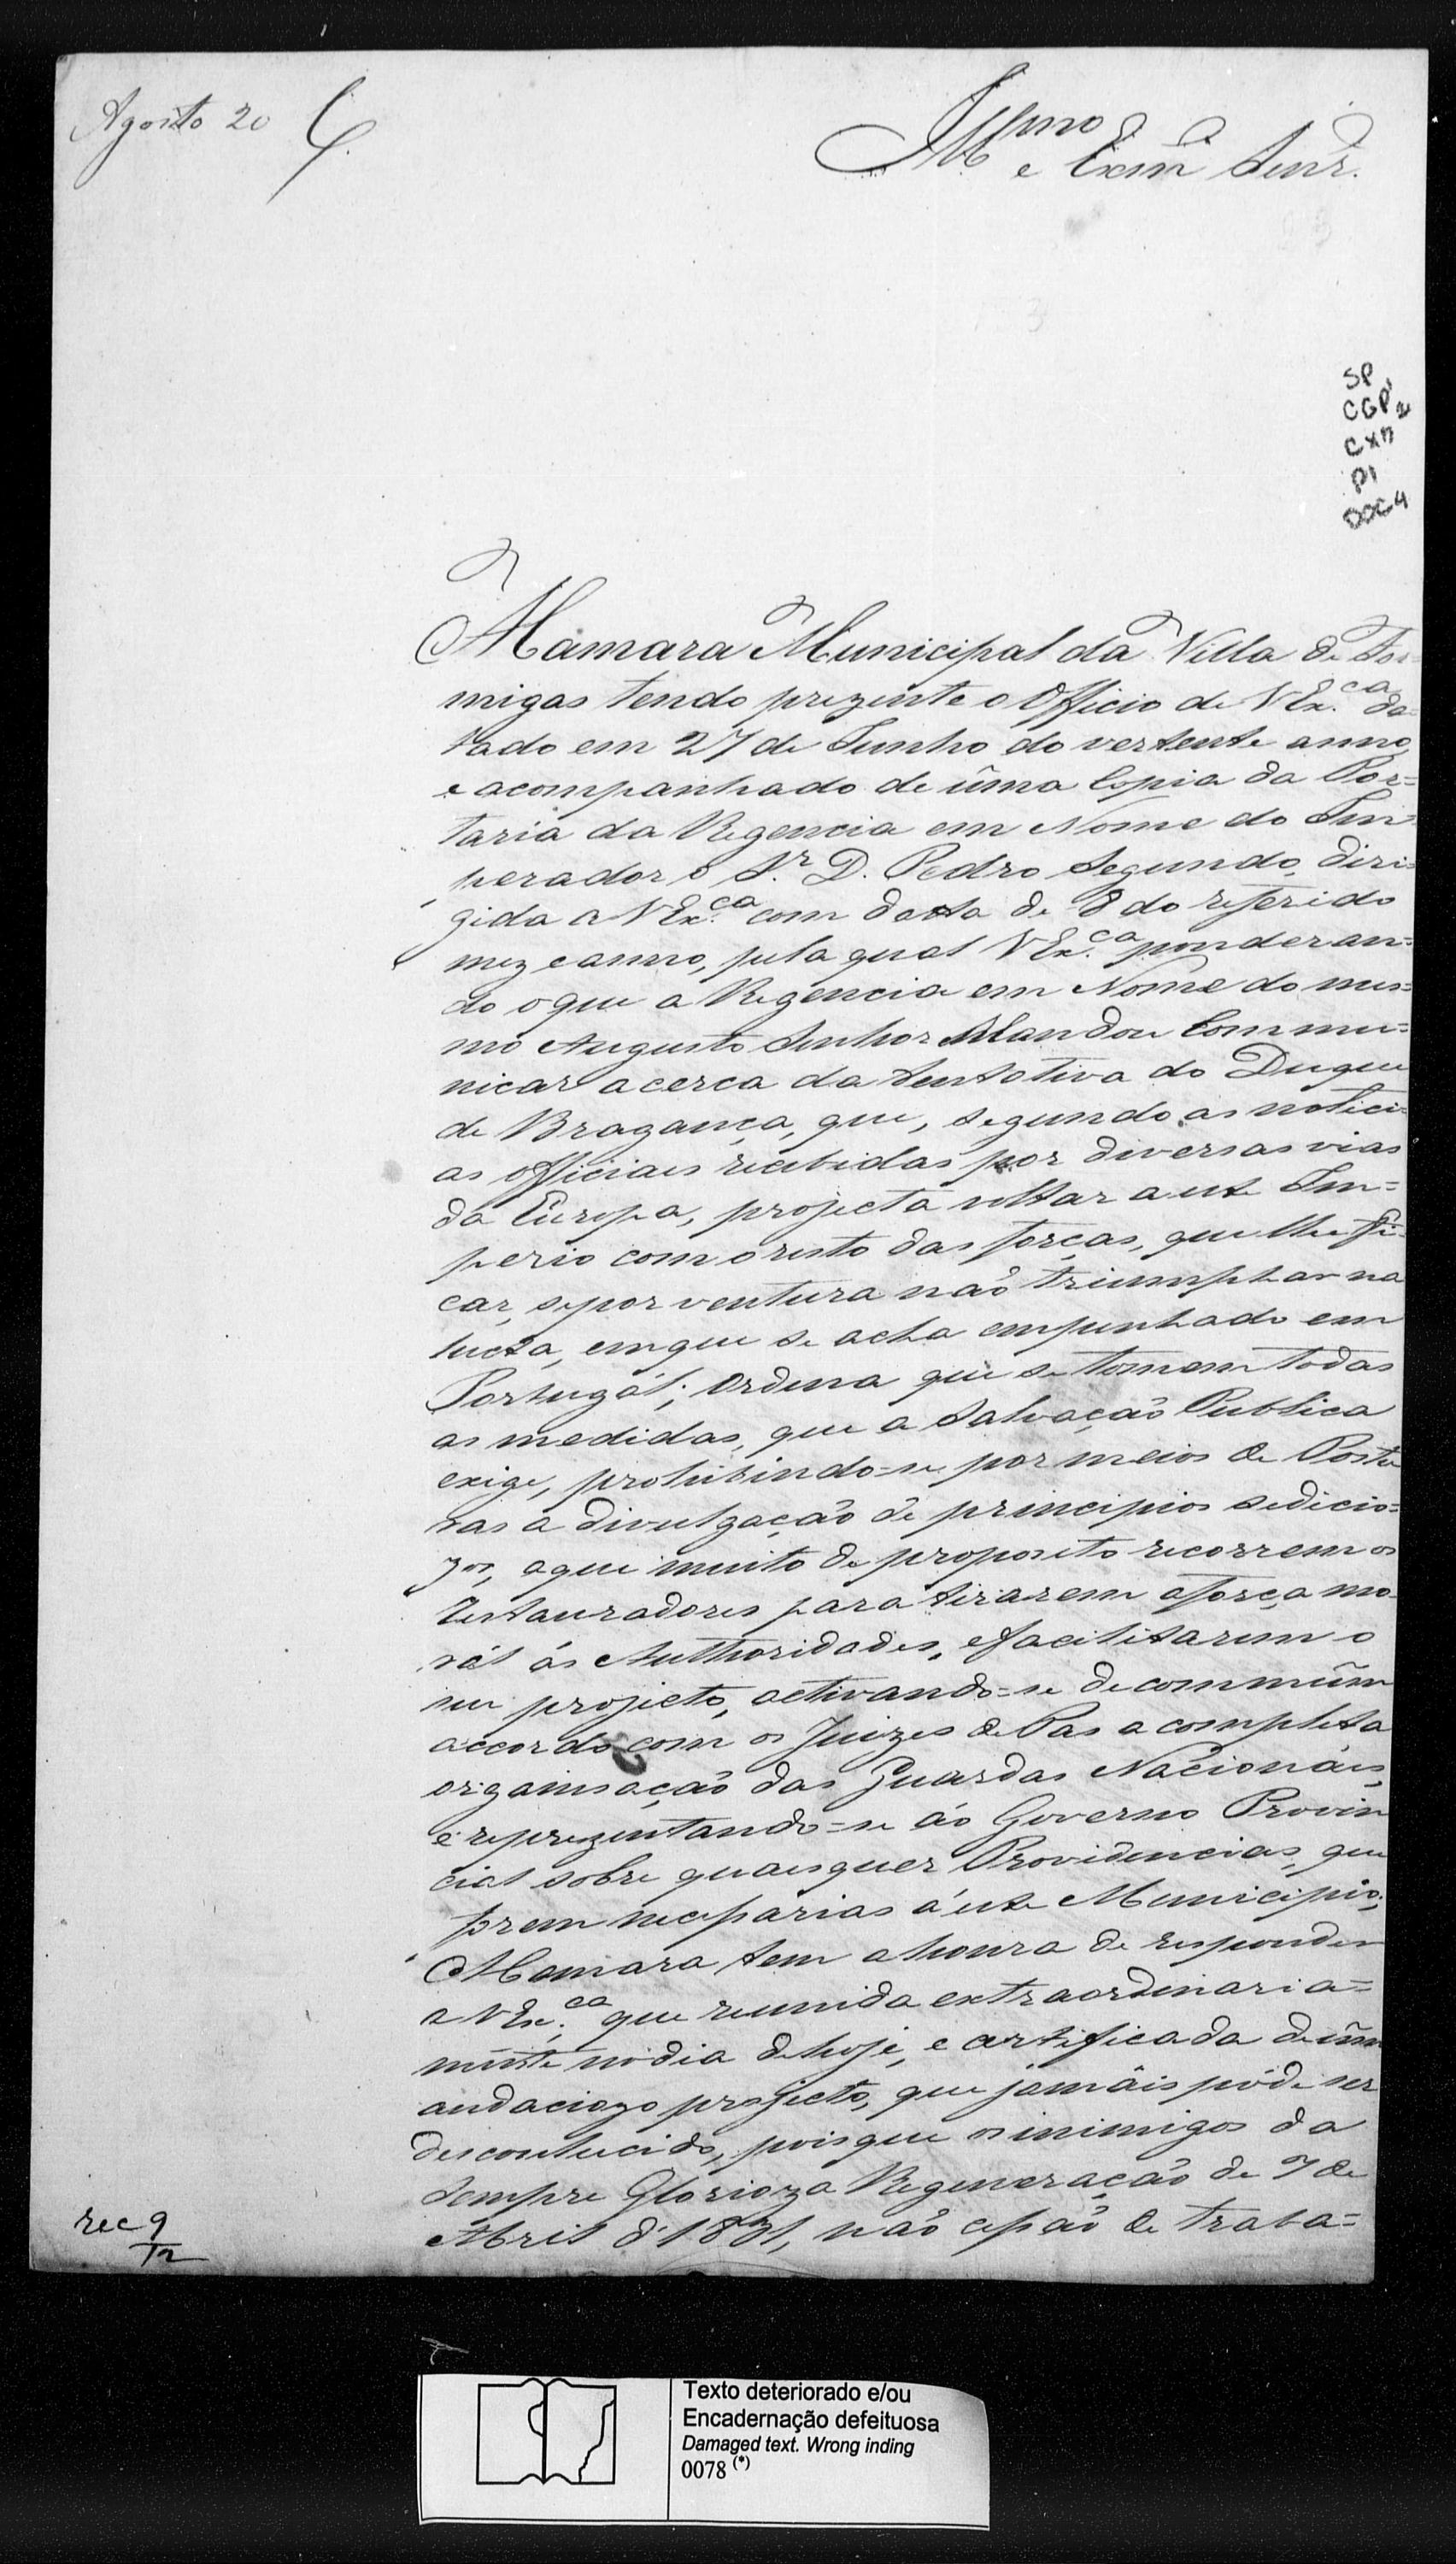 Agosto 20
Illmo e Exmº Senr.
SP
CGP¹ 2
CX 11
P1
DOC 4
A Camara Municipal da Villa de For-
migas tendo prezente o Officio de V Ex.ca da-
tado em 27 de Junho do vertente anno,
e acompanhado de ûma Copia da Por=
taria da Regencia em Nome do Im-
perador o S.r D. Pedro Segundo, diri=
gida a V Ex.ca com data de 8 do referido
mez e anno, pela qual V Ex.ca ponderan=
do o que a Regencia em Nome do mes=
mo Augusto Senhor Mandou Commu=
nicar acerca da tentativa do Duque
de Bragança, que, segundo as notici=
as officiaes recebidas por diversas vias
da Europa, projecta voltar a este Im=
perio com o resto das forças, que lhe fi-
car, se por ventura naõ triumphar na
lucta, em que se acha empenhado em
Portugál; Ordena que se tomem todas
as medidas, que a Salvaçaõ Publica
exige, prohibindo-se por meios de Postu
ras a divulgaçaõ de principios sedicio=
zos, a que muito de proposito recorrem os
Restauradores para tirarem a força mo-
rál ás Authoridades, e facilitarem o
seu projecto, activando=se de commûm
accordo com os Juizes de Pas a completa
organisaçaõ das Guardas Nacionáes,
e reprezentando=se áo Governo Provin
cial sobre quaesquer Providencias, que
forem necessarias á este Municipio;
A Camara tem a honra de responder
a V Ex.ca que reunida extraordinaria=
mente no dia de hoje, e certificada de ûm
audaciozo projecto, que jamâis póde ser
desconhecido, pois que os inimigos da
Sempre Glorioza Regeneraçaõ de 7 de
Abril d'1831, naõ cessaõ de traba=
rec 9
12
Texto deteriorado e/ou
Encadernação defeituosa
Damaged text. Wrong inding
0078 (*)